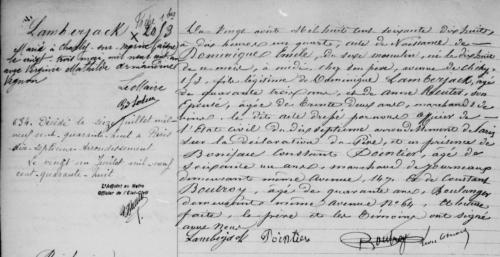 Lamberjack
Marié à Champs sur Marne
le vingt trois mars mil neuf cent
Virginie Mathilde
Vignon
Le Maire
634. Décédé le seize juillet mil
neuf cent quarante huit à Paris
dix septième arrondissement
Le vingt un Juillet mil neuf
cent quarante huit
L'Adjoint au Maire
Officier de l'Etat-Civil
Du vingt août Mil huit cent soixante dix huit,
à dix heures un quart, acte de Naissance de
Dominique Emile, du sexe masculin, né le dix huit
de ce mois, à midi, chez son père, avenue de Clichy,
153. fils légitime de Dominique Lamberjack, âgé
de quarante trois ans, et de Anne son
épouse, âgée de trente deux ans, marchands de
vins. le dit acte dressé par nous officier de
l'Etat civil du dix septième arrondissement de Paris
sur la déclaration du Père, et en présence de
Constant Pointier, âgé de
soixante un ans, marchand de journaux
demeurant même avenue, 147. et de Constant
Boutroy, âgé de quarante ans, Boulanger
demeurant même avenue No 64. et lecture
faite, le père et les témoins ont signé
avec Nous.
Lamberjack Pointier Boutroy